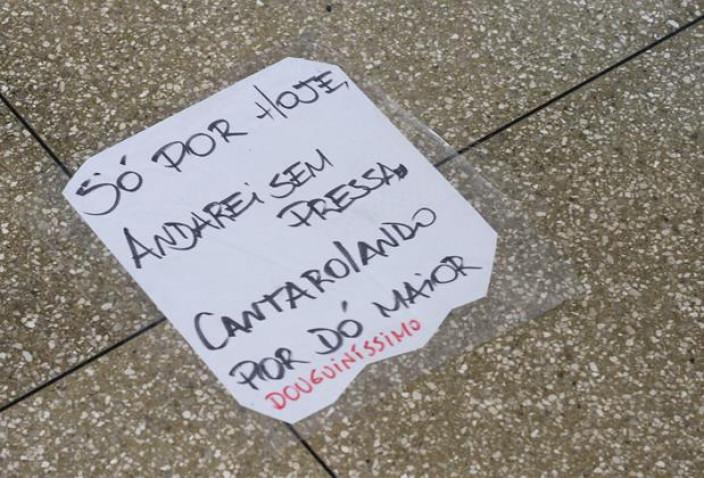 SÓ POR HOJE,
ANDAREI SEM
PRESSA,
CANTAROLANDO
POR DÓ MAIOR
DOUGUINÍSSIMO